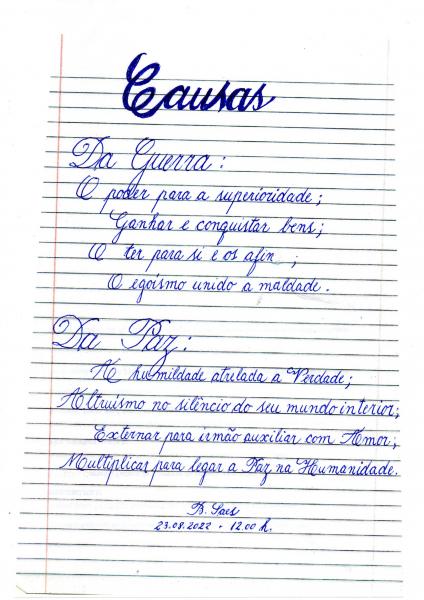 Causas
Da Guerra:
O poder para a superioridade;
Ganhar e conquistar bens;
O ter para si e os afin ;
O egoísmo unido a maldade.
Da Paz:
A humildade atrelada a Verdade;
Altruísmo no silêncio do seu mundo interior;
Externar para irmão auxiliar com Amor;
Multiplicar para legar a Paz na Humanidade.
B. Saes
23.08.2022 - 12.00 h.